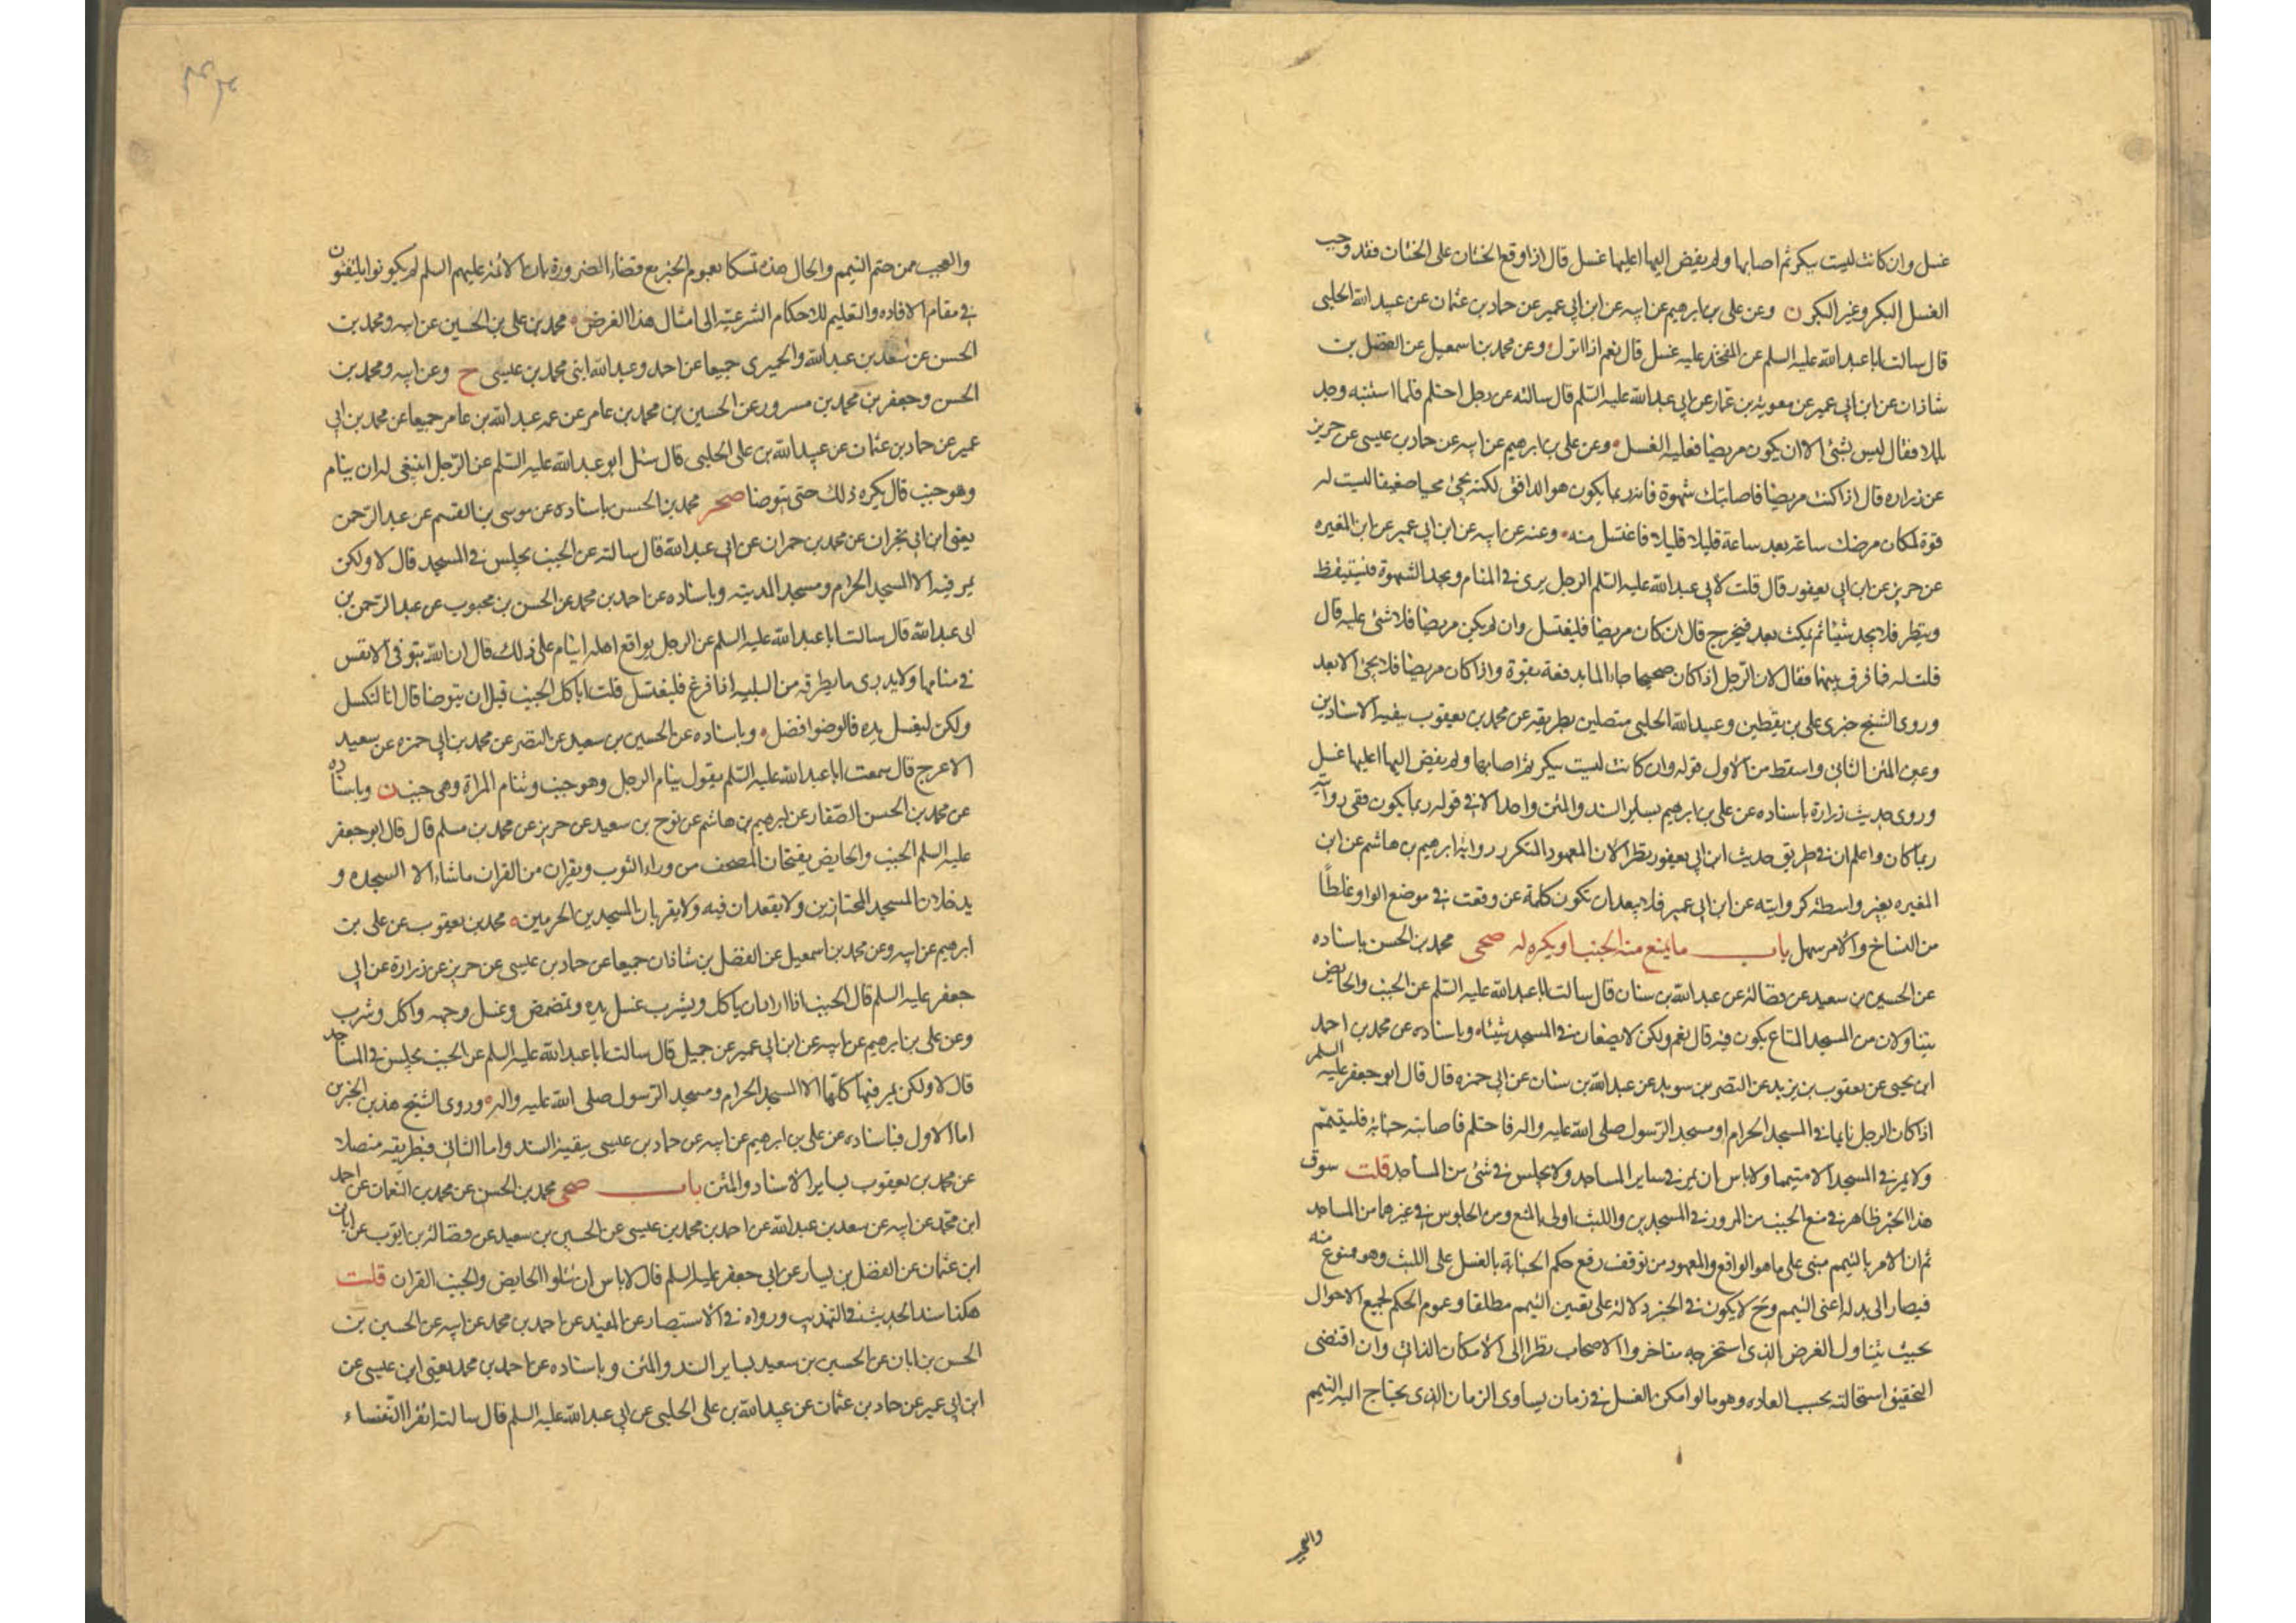 غسل وان كانت ليست ببكر ثم اصابها ولم يفض اليها اعليها غسل قال اذا وقع الختان على الختان فقد وجب
الغسل البكر وغير البكر ن وعن على بن ابرهيم عن ابيه عن ابن ابى عمير عن حماد بن عثمان عن عبيد الله الحلبى
قال سالت ابا عبد الله عليه السلم عن المفخذ عليه غسل قال نعم اذا انزل وعن محمد بن اسمعيل عن الفضل بن
شاذان عن ابن ابى عمير عن معوية بن عمار عن ابى عبد الله عليه السلم قال سالته عن رجل احتلم فلما استنبه وجد
بللا فقال ليس بشئ الا ان يكون مريضا فعليه الغسل وعن على بن ابرهيم عن ابيه عن حماد بن عيسى عن حريز
عن زراره قال اذا كنت مريضا فاصابتك شهوة فانه ربما يكون هو الدافق لكنه يجئ مجيا ضعيفا ليست له
قوة لمكان مرضك ساعة بعد ساعة قليلا قليلا فاغتسل منه وعنه عن ابيه عن ابن ابى عمير عن ابن المغيره
عن حريز عن ابن ابى يعفور قال قلت لابى عبد الله عليه السلم الرجل يرى فى المنام ويجد الشهوة فيستيقظ
وينظر فلا يجد شيئا ثم يمكث بعد فيخرج قال ان كان مريضا فليغتسل وان لم يكن مريضا فلا شئ عليه قال
قلت له فما فرق بينهما فقال لان الرجل اذا كان صحيحا جاء الما بدفعة بقوة واذا كان مريضا فلا يجئ الا بعد
وروى الشيخ خبرى على بن يقطين وعبيد الله الحلبى متصلين بطريقه عن محمد بن يعقوب ببقية الاسنادين
وعين المتن الثانى واسقط من الاول قوله وان كانت ليست ببكر ثم اصابها ولم يفض اليها اعليها غسل
وروى حديث زرارة باسناده عن على بن ابرهيم بساير السند والمتن واحد الا فى قوله ربما يكون ففى روايته
ربما كان واعلم ان فى طريق حديث ابن ابى يعفور نظرا لان المعهود المتكرر رواية ابرهيم بن هاشم عن ابن
المغيره بغير واسطة كروايته عن ابن ابى عمير فلا يبعد ان تكون كلمة عن وقعت فى موضع الواو غلطا
من النساخ والامر سهل باب ما يمنع منه الجنب او يكره له صحى محمد بن الحسن باسناده
عن الحسين بن سعيد عن فضالة عن عبد الله بن سنان قال سالت ابا عبد الله عليه السلم عن الجنب والحايض
يتناولان من المسجد المتاع يكون فيه قال نعم ولكن لا يضعان فى المسجد شيئا وباسناده عن محمد بن احمد
ابن يحيى عن يعقوب بن يزيد عن النضر بن سويد عن عبد الله بن سنان عن ابى حمزه قال قال ابو جعفر عليه السلم
اذا كان الرجل نايما فى المسجد الحرام او مسجد الرسول صلى الله عليه واله فاحتلم فاصابته جنابة فليتيمم
ولا يمر فى المسجد الا متيمما ولا باس ان يمر فى ساير المساجد ولا يجلس فى شئ من المساجد قلت سوق
هذا الخبر ظاهر فى منع الجنب من المرور فى المسجدين واللبث اولى بالمنع ومن الجلوس فى غيرهما من المساجد
ثم ان الامر بالتيمم مبنى على ما هو الواقع والمعهود من توقف رفع حكم الجنابة بالغسل على اللبث وهو ممنوع منه
فيصار الى بدله اعنى التيمم وح لا يكون فى الخبر دلالة على تعين التيمم مطلقا وعموم الحكم لجميع الاحوال
بحيث يتناول الفرض الذى استخرجه متاخروا الاصحاب نظرا الى الامكان الذاتى وان اقتضى
التحقيق استحالته بحسب العاده وهو ما لو امكن الغسل فى زمان يساوى الزمان الذى يحتاج اليه التيمم
والعجب
والعجب ممن حتم التيمم والحال هذه تمسكا بعموم الخبر مع قضاء الضرورة بان الائمة عليهم السلم لم يكونوا يلتفتون
فى مقام الافاده والتعليم للاحكام الشرعية الى امثال هذا الفرض محمد بن على بن الحسين عن ابيه ومحمد بن
الحسن عن سعد بن عبد الله والحميرى جميعا عن احمد وعبد الله ابنى محمد بن عيسى ح وعن ابيه ومحمد بن
الحسن وجعفر بن محمد بن مسرور عن الحسين بن محمد بن عامر عن عمه عبد الله بن عامر جميعا عن محمد بن ابى
عمير عن حماد بن عثمان عن عبيد الله بن على الحلبى قال سئل ابو عبد الله عليه السلم عن الرجل اينبغى له ان ينام
وهو جنب قال يكره ذلك حتى يتوضا صحر محمد بن الحسن باسناده عن موسى بن القسم عن عبد الرحمن
يعنى ابن ابى نجران عن محمد بن حمران عن ابى عبد الله قال سالته عن الجنب يجلس فى المسجد قال لا ولكن
يمر فيه الا المسجد الحرام ومسجد المدينه وباسناده عن احمد بن محمد عن الحسن بن محبوب عن عبد الرحمن بن
ابى عبد الله قال سالت ابا عبد الله عليه السلم عن الرجل يواقع اهله اينام على ذلك قال ان الله يتوفى الانفس
فى منامها ولا يدرى ما يطرقه من البليه اذا فرغ فليغتسل قلت اياكل الجنب قبل ان يتوضا قال انا لنكسل
ولكن ليغسل يده فالوضوا فضل وباسناده عن الحسين بن سعيد عن النضر عن محمد بن ابى حمزه عن سعيد
الاعرج قال سمعت ابا عبد الله عليه السلم يقول ينام الرجل وهو جنب وتنام المراة وهى جنب ن وباسناده
عن محمد بن الحسن الصفار عن ابرهيم بن هاشم عن نوح بن سعيد عن حريز عن محمد بن مسلم قال قال ابو جعفر
عليه السلم الجنب والحايض يفتحان المصحف من وراء الثوب ويقران من القران ما شاءا الا السجده و
يدخلان المسجد المجتازين ولا يقعدان فيه ولا يقربان المسجدين الحرمين محمد بن يعقوب عن على بن
ابرهيم عن ابيه وعن محمد بن اسمعيل عن الفضل بن شاذان جميعا عن حماد بن عيسى عن حريز عن زرارة عن ابى
جعفر عليه السلم قال الجنب اذا اراد ان ياكل ويشرب غسل يده وتمضمض وغسل وجهه واكل وشرب
وعن على بن ابرهيم عن ابيه عن ابن ابى عمير عن جميل قال سالت ابا عبد الله عليه السلم عن الجنب يجلس فى المساجد
قال لا ولكن يمر فيها كلها الا المسجد الحرام ومسجد الرسول صلى الله عليه واله وروى الشيخ هذين الخبرين
اما الاول فباسناده عن على بن ابرهيم عن ابيه عن حماد بن عيسى ببقية السند واما الثانى فبطريقه متصلا
عن محمد بن يعقوب بساير الاسناد والمتن باب صحى محمد بن الحسن عن محمد بن النعمان عن احمد
ابن محمد عن ابيه عن سعد بن عبد الله عن احمد بن محمد بن عيسى عن الحسين بن سعيد عن فضالة بن ايوب عن ابان
ابن عثمان عن الفضل بن يسار عن ابى جعفر عليه السلم قال لا باس ان تتلوا الحايض والجنب القران قلت
هكذا سند الحديث فى التهذيب ورواه فى الاستبصار عن المفيد عن احمد بن محمد عن ابيه عن الحسين بن
الحسن بن ابان عن الحسين بن سعيد بساير السند والمتن وباسناده عن احمد بن محمد يعنى ابن عيسى عن
ابن ابى عمير عن حماد بن عثمان عن عبيد الله بن على الحلبى عن ابى عبد الله عليه السلم قال سالته اتقرا النفساء